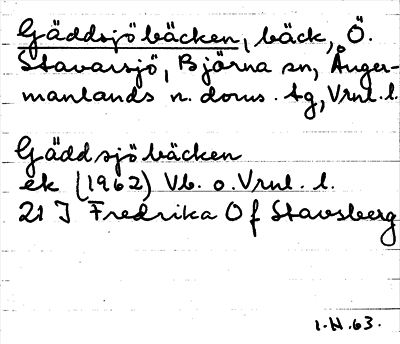 Gäddsjöbäcken, bäck, Ö.
Stavarsjö, Björna sn, Ånger-
manlands n. doms. tg, Vrnl. l.
Gäddsjöbäcken
ek (1962) Vb. o. Vrnl. l.
21 J Fredrika O f Stavsberg
1.H.63.